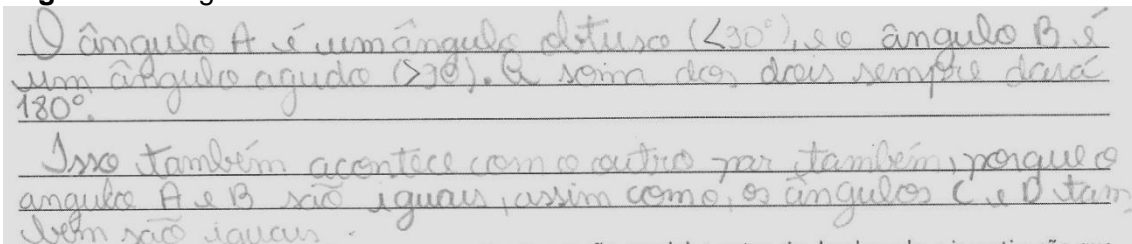 O ângulo A é um ângulo obtuso (<90°), e o ângulo B é
um ângulo agudo (>90). A soma dos dois sempre dará
180°.
Isso também acontece com o outro par também, porque o
angulo A e B são iguais, assim como, os ângulos C e D tam
bém são iguais.